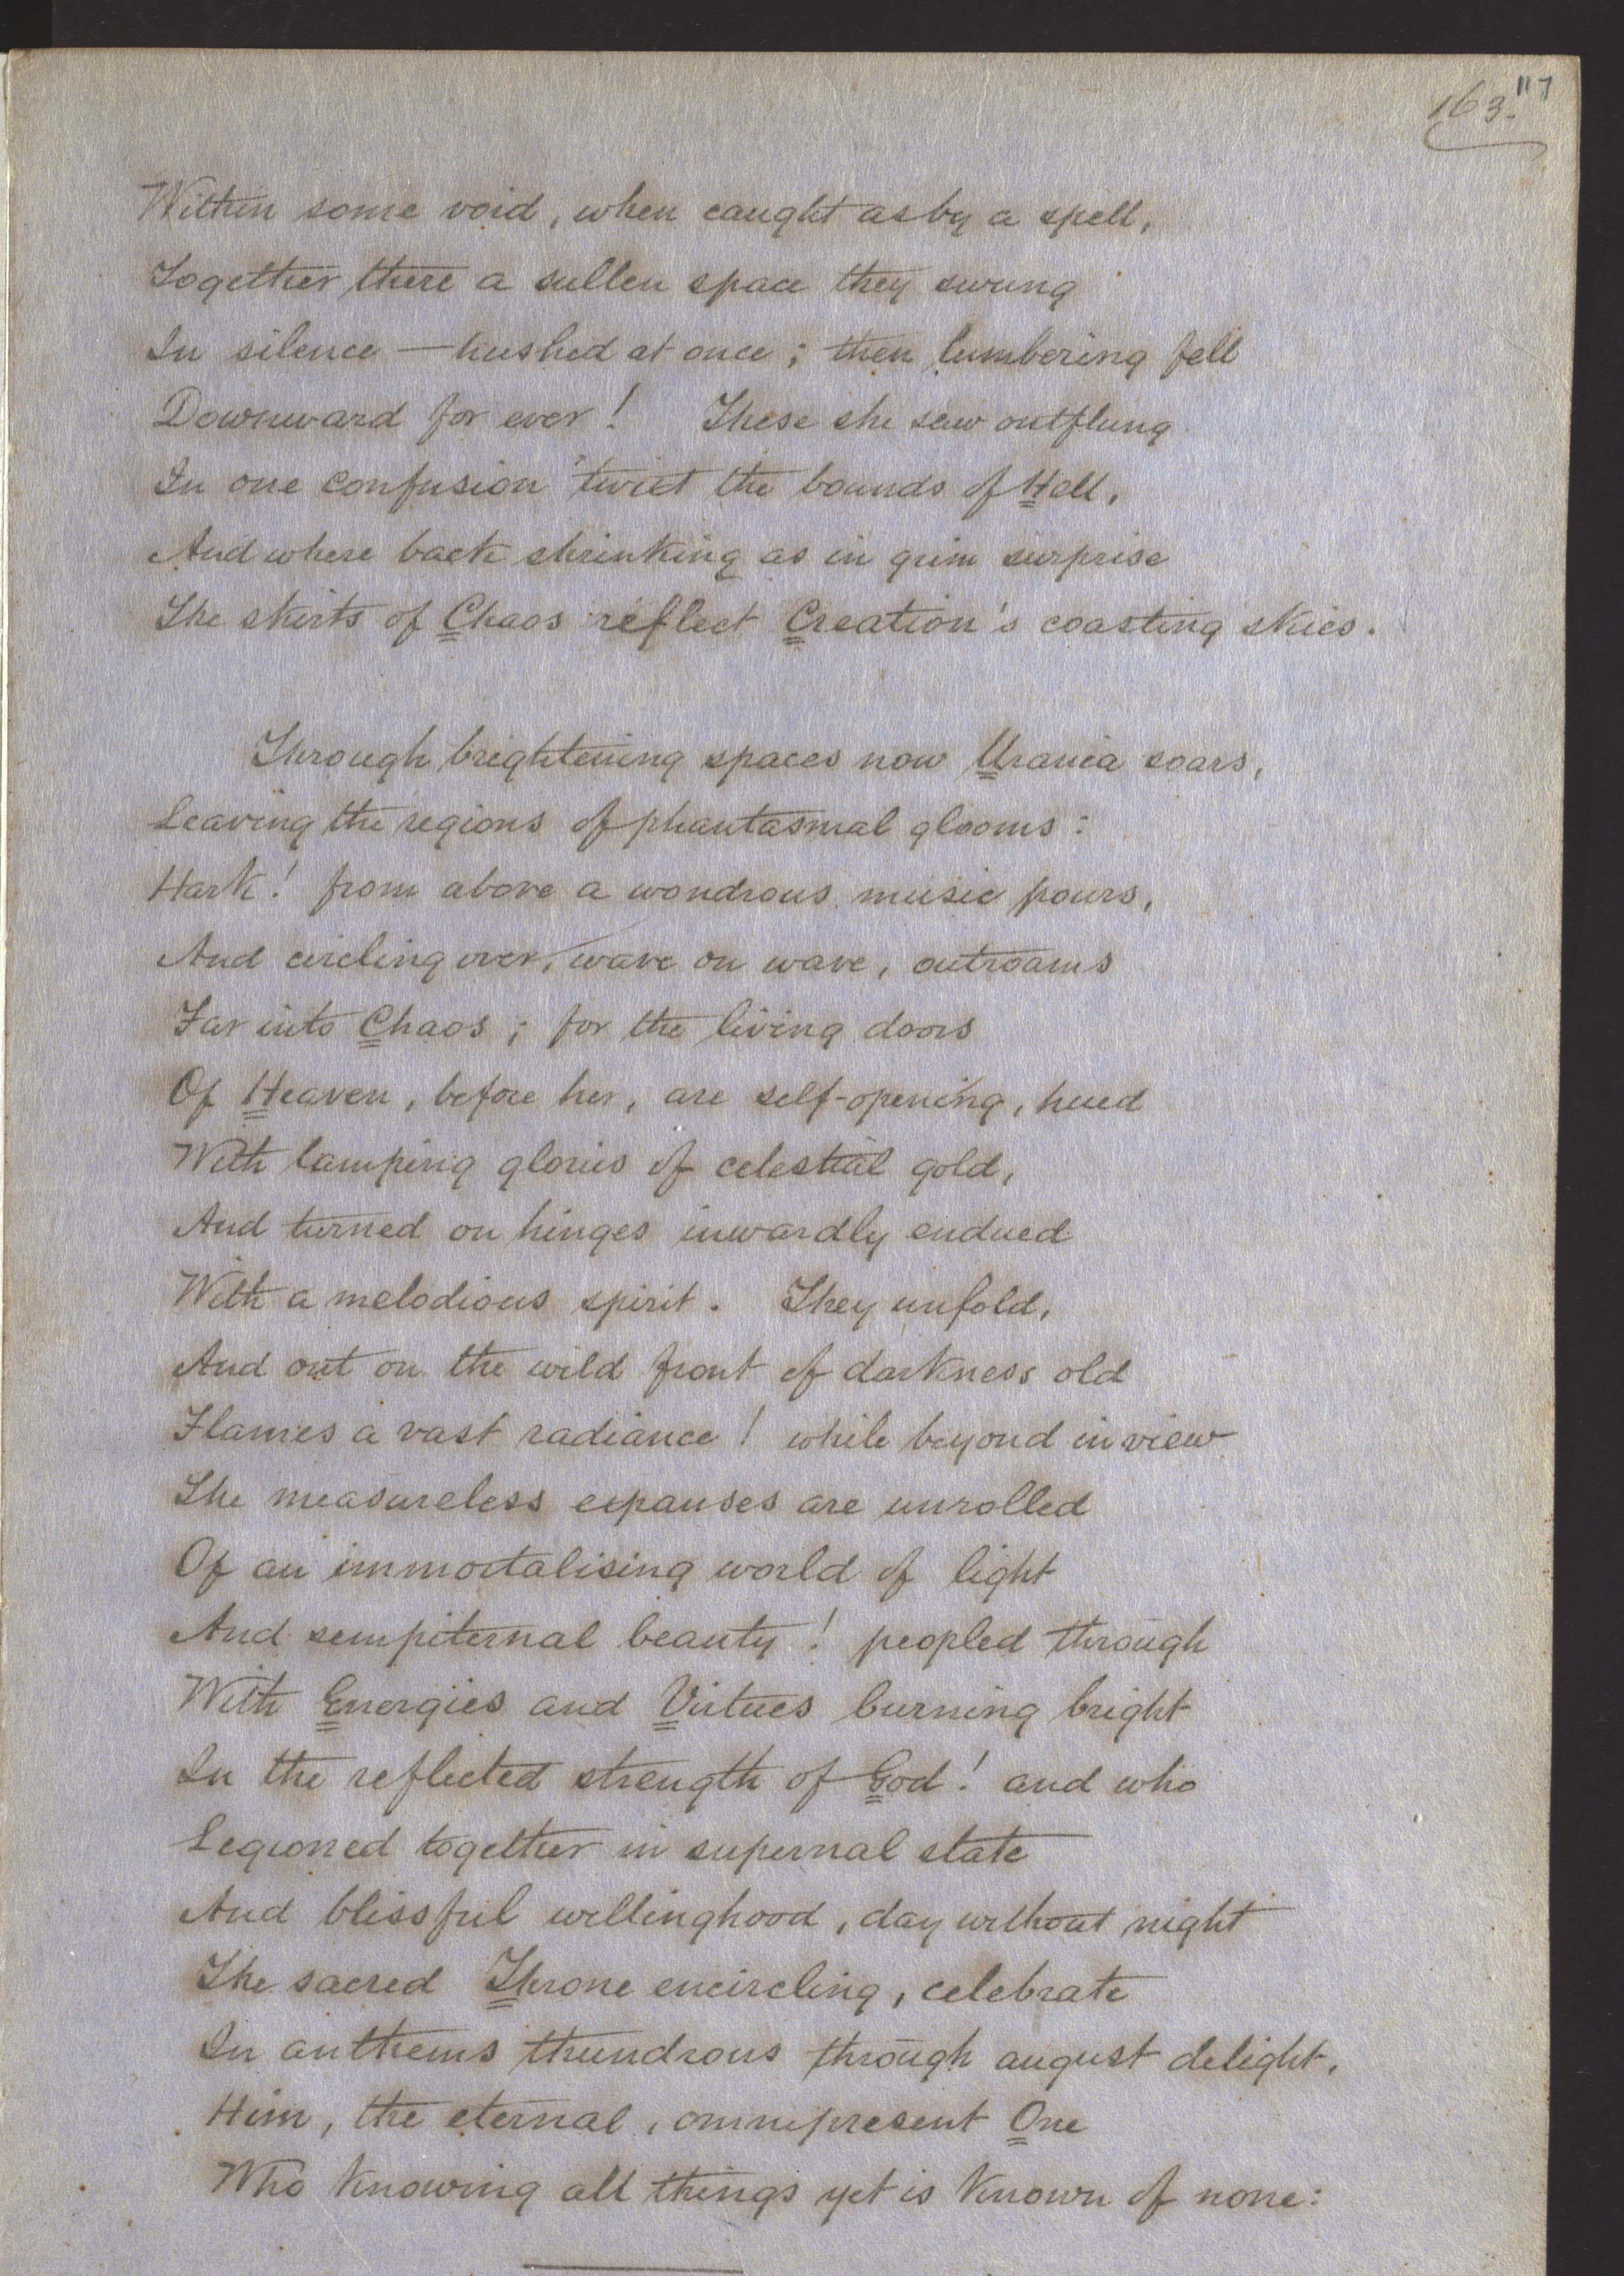 163. 117
Within some void, when caught as by a spell,
Together, there a sullen space they swung
In silence — hushed at once; then lumbering fell
Downward for ever! These she saw outflung
In one confusion 'twixt the bounds of Hell,
And where back shrinking as in grim surprise
The skirts of Chaos reflect Creation's coasting skies.
Through brightening spaces now Urania soars,
Leaving the regions of phantasmal glooms:
Hark! from above a wondrous music pours,
And circling over, wave on wave, outroams
Far into Chaos; for the living doors
Of Heaven, before her, are self-opening, hued
With lamping glories of celestial gold,
And turned on hinges inwardly endued
With a melodious spirit. They unfold,
And out on the wild front of darkness old
Flames a vast radiance! while beyond in view
The measureless expanses are unrolled
Of an immortalising world of light
And sempiternal beauty! peopled through
With Energies and Virtues burning bright
In the reflected strength of God! and who
Legioned together in supernal state
And blissful willinghood, day without night
The sacred Throne encircling, celebrate
In anthems thundrous through august delight,
Him, the eternal, omnipresent One
Who knowing all things yet is known of none: